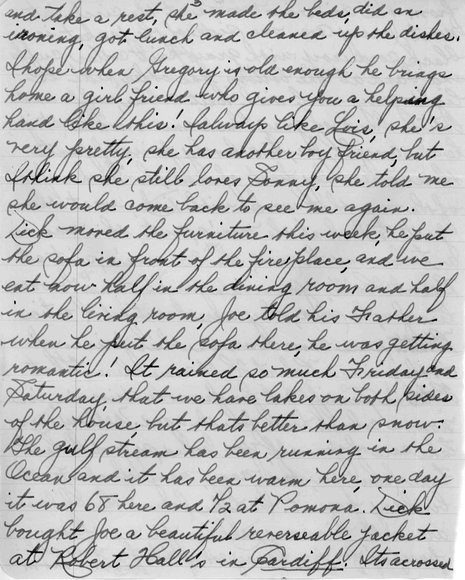 and take a rest, she made the beds, did an
ironing, got lunch and cleaned up the dishes.
I hope when Gregory is old enough he brings
home a girl friend who gives you a helping
hand like this! I always like Lois, she's
very pretty, she has another boy friend, but
I think she still loves Sonny, she told me
she would come back to see me again.
Dick moved the furniture this week, he put
the sofa in front of the fire place, and we
eat now half in the dining room and half
in the living room, Joe told his Father
when he put the sofa there, he was getting
romantic! It rained so much Friday and
Saturday, that we have lakes on both sides
of the house, but thats better than snow.
The gulf stream has been running in the
Ocean and it has been warm here, one day
it was 68 here and 72 at Pomona. Dick
bought Joe a beautiful reverseable jacket
at Robert Hall's in Cardiff. Its acrossed